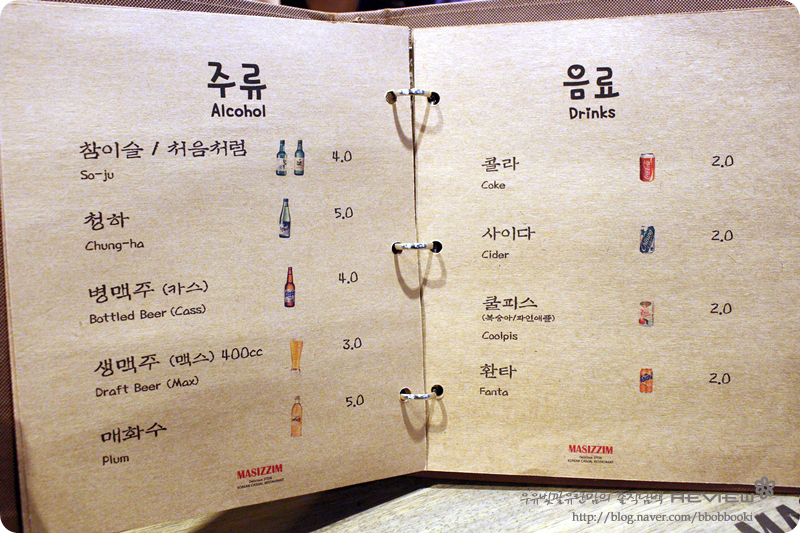 주류
Alcohol
참이슬 / 처음처럼 4.0
So-ju
청하 5.0
Chung-ha
병맥주 (카스) 4.0
Bottled Beer (Cass)
생맥주 (맥스) 400cc 3.0
Draft Beer (Max)
매화수 5.0
Plum
MASIZZIM
KOREAN CASUAL RESTAURANT
음료
Drinks
콜라 2.0
Coke
사이다 2.0
Cider
쿨피스 2.0
(복숭아/파인애플)
Coolpis
환타 2.0
Fanta
MASIZZIM
KOREAN CASUAL RESTAURANT
우유빛깔유란맘의 솔직담백 REVIEW
http://blog.naver.com/bbobbooki
MA